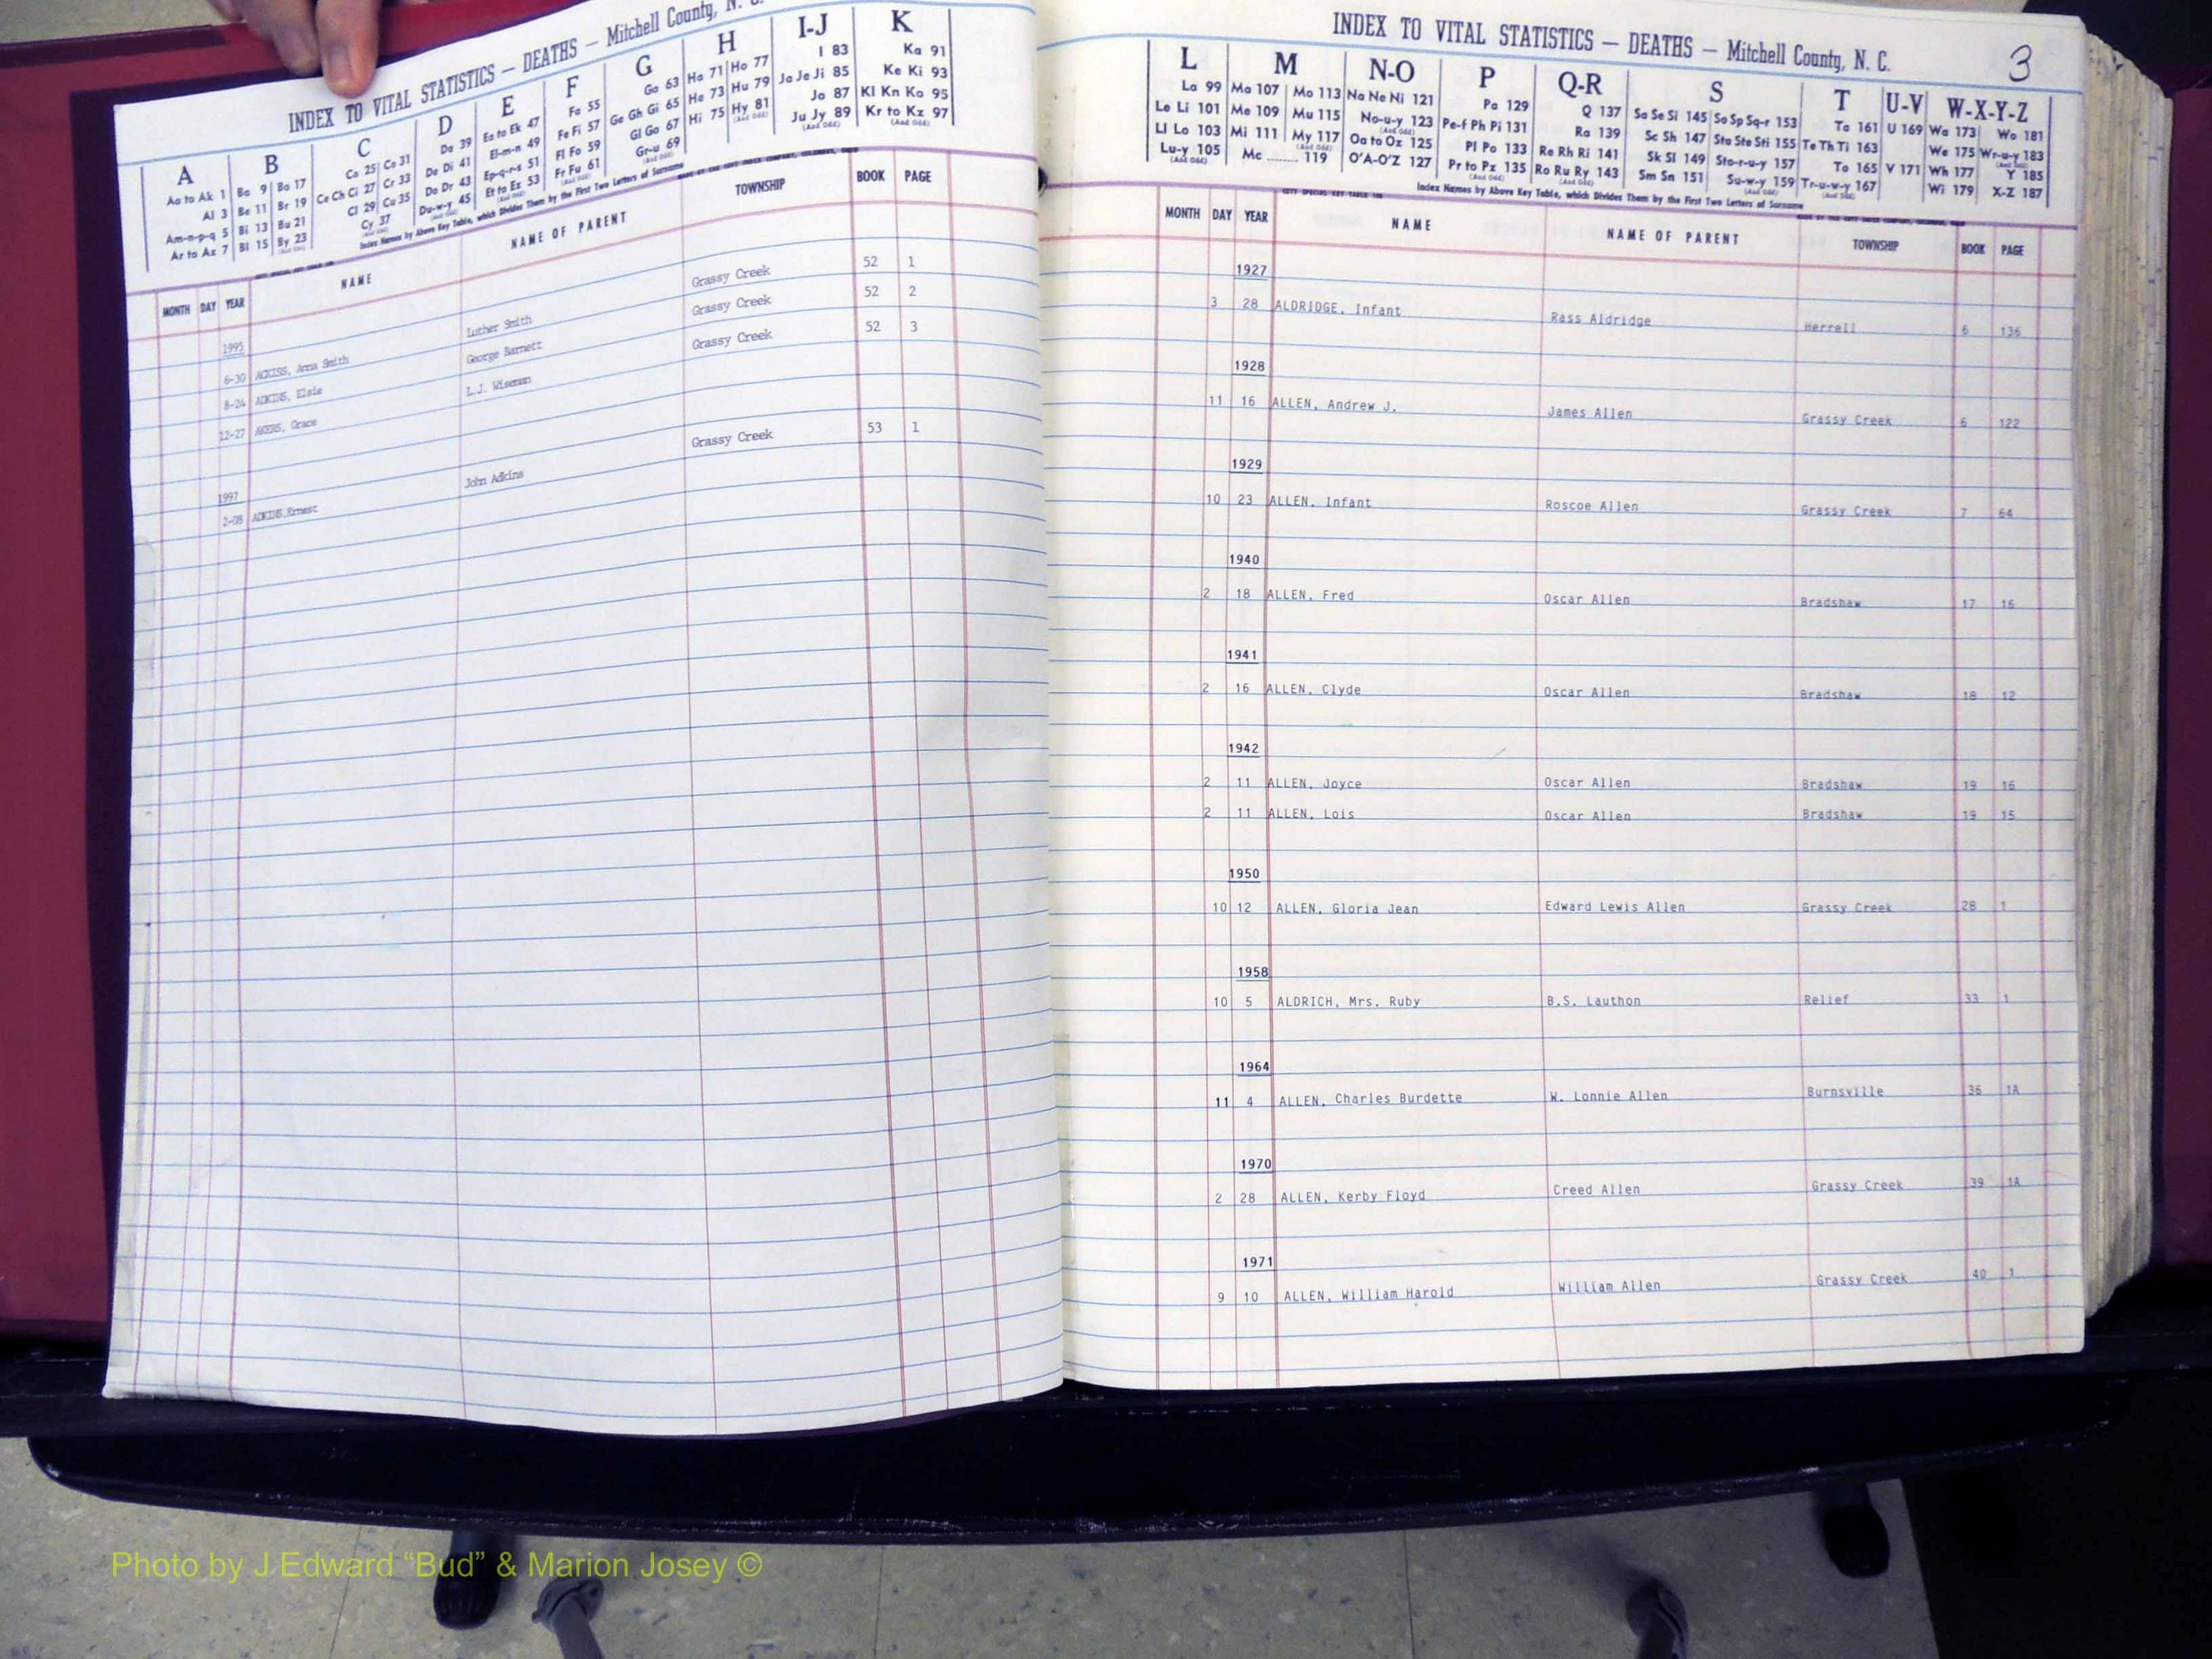 INDEX TO VITAL STATISTICS — DEATHS — Mitchell County, N. C.
A B C D E F G H I-J K
Aa to Ak 1
Al 3
Am-n-p-q 5
Ar to Az 7
Ba 9 Bo 17
Be 11 Br 19
Bi 13 Bu 21
Bl 15 By 23
(And Odd)
Ca 25 Co 31
Ce Ch Ci 27 Cr 33
Cl 29 Cu 35
Cy 37
(And Odd)
Da 39
De Di 41
Do Dr 43
Du-w-y 45
(And Odd)
Ea to Ek 47
El-m-n 49
Ep-q-r-s 51
Et to Ez 53
Fa 55
Fe Fi 57
Fl Fo 59
Fr Fu 61
(And Odd)
Ga 63
Ge Gh Gi 65
Gl Go 67
Gr-u 69
(And Odd)
Ha 71 Ho 77
He 73 Hu 79
Hi 75 Hy 81
(And Odd)
I 83
Ja Je Ji 85
Jo 87
Ju Jy 89
(And Odd)
Ka 91
Ke Ki 93
Kl Kn Ko 95
Kr to Kz 97
(And Odd)
Index Names by Above Key Table, which Divides Them by the First Two Letters of Surname
MONTH DAY YEAR NAME NAME OF PARENT TOWNSHIP BOOK PAGE
1995
6-30 ACKISS, Anna Smith Luther Smith Grassy Creek 52 1
8-24 ADKINS, Elsie George Barnett Grassy Creek 52 2
12-27 AKERS, Grace L.J. Wiseman Grassy Creek 52 3
1997
2-08 ADKINS,Ernest John Adkins Grassy Creek 53 1
INDEX TO VITAL STATISTICS — DEATHS — Mitchell County, N. C.
3
L M N-O P Q-R S T U-V W-X-Y-Z
La 99
Le Li 101
Ll Lo 103
Lu-y 105
(And Odd)
Ma 107 Mo 113
Me 109 Mu 115
Mi 111 My 117
(And Odd)
Mc ........ 119
Na Ne Ni 121
No-u-y 123
(And Odd)
Oa to Oz 125
O'A-O'Z 127
Pa 129
Pe-f Ph Pi 131
Pl Po 133
Pr to Pz 135
Q 137
Ra 139
Re Rh Ri 141
Ro Ru Ry 143
(And Odd)
Sa Se Si 145 So Sp Sq-r 153
Sc Sh 147 Sta Ste Sti 155
Sk Sl 149 Sto-r-u-y 157
Sm Sn 151 Su-w-y 159
(And Odd)
Ta 161
Te Th Ti 163
To 165
Tr-u-w-y 167
(And Odd)
U 169
V 171
Wa 173 Wo 181
We 175 Wr-u-y 183
(And Odd)
Wh 177 Y 185
Wi 179 X-Z 187
Index Names by Above Key Table, which Divides Them by the First Two Letters of Surname
MONTH DAY YEAR NAME NAME OF PARENT TOWNSHIP BOOK PAGE
1927
3 28 ALDRIDGE, Infant Rass Aldridge Herrell 6 136
1928
11 16 ALLEN, Andrew J. James Allen Grassy Creek 6 122
1929
10 23 ALLEN, Infant Roscoe Allen Grassy Creek 7 64
1940
2 18 ALLEN, Fred Oscar Allen Bradshaw 17 16
1941
2 16 ALLEN, Clyde Oscar Allen Bradshaw 18 12
1942
2 11 ALLEN, Joyce Oscar Allen Bradshaw 19 16
2 11 ALLEN, Lois Oscar Allen Bradshaw 19 15
1950
10 12 ALLEN, Gloria Jean Edward Lewis Allen Grassy Creek 28 1
1958
10 5 ALDRICH, Mrs. Ruby B.S. Lauthon Relief 33 1
1964
11 4 ALLEN, Charles Burdette W. Lonnie Allen Burnsville 36 1A
1970
2 28 ALLEN, Kerby Floyd Creed Allen Grassy Creek 39 1A
1971
9 10 ALLEN, William Harold William Allen Grassy Creek 40 1
Photo by J Edward “Bud” & Marion Josey ©